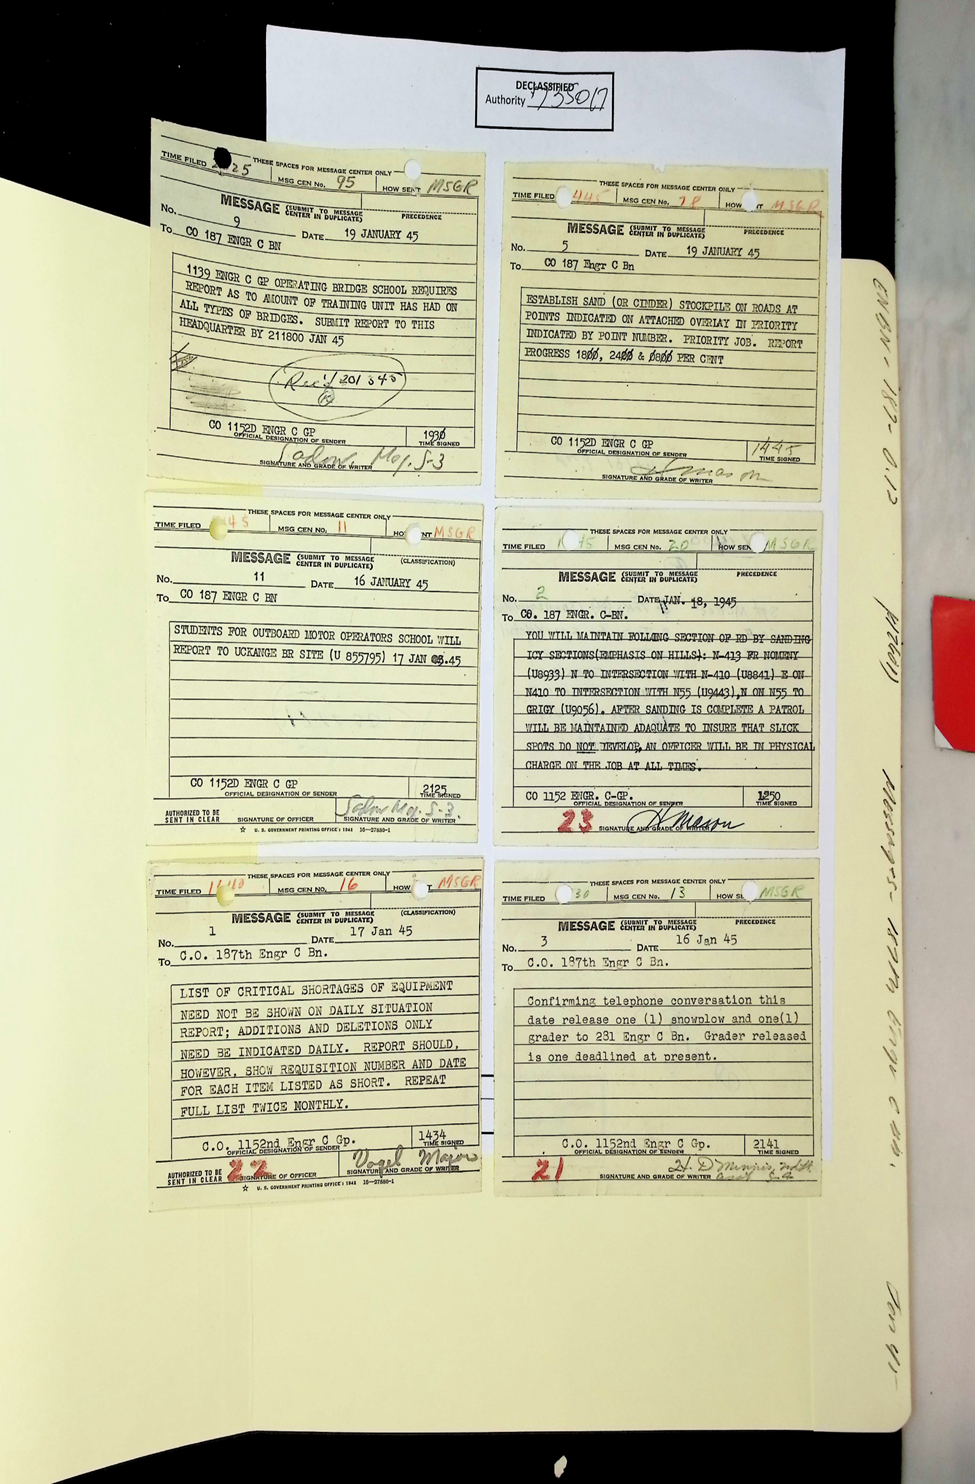 DECLASSIFIED
Authority 735017
THESE SPACES FOR MESSAGE CENTER ONLY
TIME FILED MSG CEN No. 95 HOW SENT MSGR
MESSAGE (SUBMIT TO MESSAGE CENTER IN DUPLICATE) PRECEDENCE
No. 9 DATE 19 JANUARY 45
To CO 187 ENGR C BN
1139 ENGR C GP OPERATING BRIDGE SCHOOL REQUIRES
REPORT AS TO AMOUNT OF TRAINING UNIT HAS HAD ON
ALL TYPES OF BRIDGES. SUBMIT REPORT TO THIS
HEADQUARTER BY 211800 JAN 45
Rec'd 201345
CO 1152D ENGR C GP 1930
OFFICIAL DESIGNATION OF SENDER TIME SIGNED
Maj. S-3
SIGNATURE AND GRADE OF WRITER
THESE SPACES FOR MESSAGE CENTER ONLY
TIME FILED 1445 MSG CEN No. 78 HOW SENT MSGR
MESSAGE (SUBMIT TO MESSAGE CENTER IN DUPLICATE) PRECEDENCE
No. 5 DATE 19 JANUARY 45
To CO 187 Engr C Bn
ESTABLISH SAND (OR CINDER) STOCKPILE ON ROADS AT
POINTS INDICATED ON ATTACHED OVERLAY IN PRIORITY
INDICATED BY POINT NUMBER. PRIORITY JOB. REPORT
PROGRESS 1800, 2400 & 0800 PER CENT
CO 1152D ENGR C GP 1445
OFFICIAL DESIGNATION OF SENDER TIME SIGNED
Mason
SIGNATURE AND GRADE OF WRITER
THESE SPACES FOR MESSAGE CENTER ONLY
TIME FILED 45 MSG CEN No. 11 HOW SENT MSGR
MESSAGE (SUBMIT TO MESSAGE CENTER IN DUPLICATE) (CLASSIFICATION)
No. 11 DATE 16 JANUARY 45
To CO 187 ENGR C BN
STUDENTS FOR OUTBOARD MOTOR OPERATORS SCHOOL WILL
REPORT TO UCKANGE BR SITE (U 855795) 17 JAN 45
CO 1152D ENGR C GP 2125
OFFICIAL DESIGNATION OF SENDER TIME SIGNED
Maj. S-3.
AUTHORIZED TO BE SENT IN CLEAR SIGNATURE OF OFFICER SIGNATURE AND GRADE OF WRITER
☆ U. S. GOVERNMENT PRINTING OFFICE : 1943 16—27880-1
THESE SPACES FOR MESSAGE CENTER ONLY
TIME FILED 45 MSG CEN No. 20 HOW SEN MSGR
MESSAGE (SUBMIT TO MESSAGE CENTER IN DUPLICATE) PRECEDENCE
No. 2 DATE JAN. 18, 1945
To CO. 187 ENGR. C-BN.
YOU WILL MAINTAIN FOLLWING SECTION OF RD BY SANDING
ICY SECTIONS(EMPHASIS ON HILLS): N-413 FR NOMENY
(U8933) N TO INTERSECTION WITH N-410 (U8841) E ON
N410 TO INTERSECTION WITH N55 (U9443),N ON N55 TO
GRIGY (U9056). AFTER SANDING IS COMPLETE A PATROL
WILL BE MAINTAINED ADAQUATE TO INSURE THAT SLICK
SPOTS DO NOT DEVELOP, AN OFFICER WILL BE IN PHYSICAL
CHARGE ON THE JOB AT ALL TIMES.
CO 1152 ENGR. C-GP. 1250
OFFICIAL DESIGNATION OF SENDER TIME SIGNED
23 H Mason
SIGNATURE AND GRADE OF WRITER
THESE SPACES FOR MESSAGE CENTER ONLY
TIME FILED MSG CEN No. 16 HOW MSGR
MESSAGE (SUBMIT TO MESSAGE CENTER IN DUPLICATE) (CLASSIFICATION)
No. 1 DATE 17 Jan 45
To C.O. 187th Engr C Bn.
LIST OF CRITICAL SHORTAGES OF EQUIPMENT
NEED NOT BE SHOWN ON DAILY SITUATION
REPORT; ADDITIONS AND DELETIONS ONLY
NEED BE INDICATED DAILY. REPORT SHOULD,
HOWEVER, SHOW REQUISITION NUMBER AND DATE
FOR EACH ITEM LISTED AS SHORT. REPEAT
FULL LIST TWICE MONTHLY.
C.O. 1152nd Engr C Gp. 1434
OFFICIAL DESIGNATION OF SENDER TIME SIGNED
22 Vogel Major
AUTHORIZED TO BE SENT IN CLEAR SIGNATURE OF OFFICER SIGNATURE AND GRADE OF WRITER
☆ U. S. GOVERNMENT PRINTING OFFICE : 1943 16—27880-1
THESE SPACES FOR MESSAGE CENTER ONLY
TIME FILED 30 MSG CEN No. 13 HOW S MSGR
MESSAGE (SUBMIT TO MESSAGE CENTER IN DUPLICATE) PRECEDENCE
No. 3 DATE 16 Jan 45
To C.O. 187th Engr C Bn.
Confirming telephone conversation this
date release one (1) snowplow and one(1)
grader to 231 Engr C Bn. Grader released
is one deadlined at present.
C.O. 1152nd Engr C Gp. 2141
OFFICIAL DESIGNATION OF SENDER TIME SIGNED
21 H. D
SIGNATURE AND GRADE OF WRITER S-4
ENBN-187-0.13 Messages-187th Engr C Bn. Jan 45